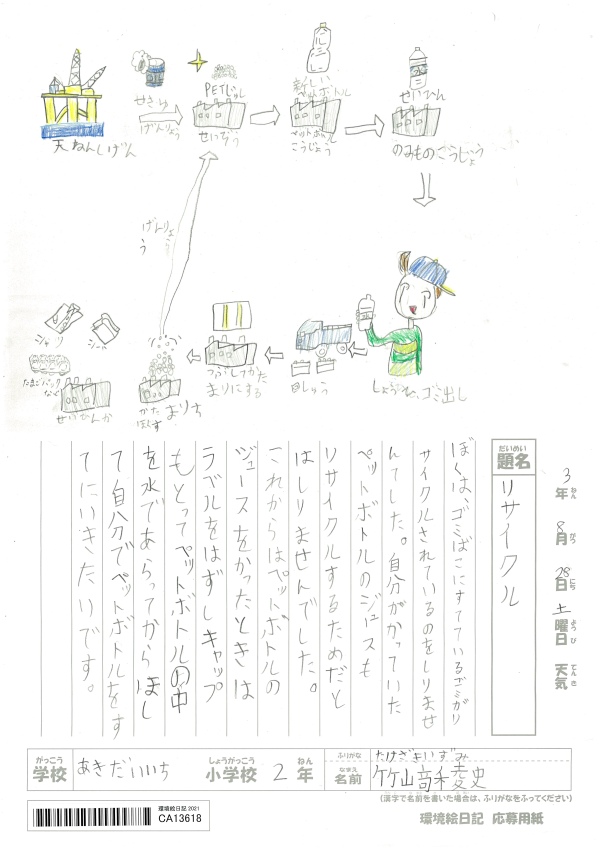 せきゆ
PETじゅし
新しい
ペットボトル
せいひん
げんりょう
せいぞう
ペットボトル
こうじょう
のみものこうじょう
天ねんしげん
げんりょう
シャツ
シート
たまごパック
など
せいひんか
かたまりを
ほぐす
つぶしてかた
まりにする
しゅう
ゴミ出し
3年 8月 28日 土曜日 天気
ねん がつ にち ようび てんき
だいめい
題名
リサイクル
ぼくは、ゴミばこにすてているゴミがリ
サイクルされているのをしりませ
んでした。自分がかっていた
ペットボトルのジュースも
リサイクルするためだと
はしりませんでした。
これからはペットボトルの
ジュースをかったときは
ラベルをはずしキャップ
もとってペットボトルの中
を水であらってからほし
て自分でペットボトルをす
てにいきたいです。
がっこう
学校
あきだいいち
しょうがっこう
小学校
2
ねん
年
ふりがな
なまえ
名前
(漢字で名前を書いた場合は、ふりがなをふってください)
環境絵日記 応募用紙
環境絵日記 2021
CA13618